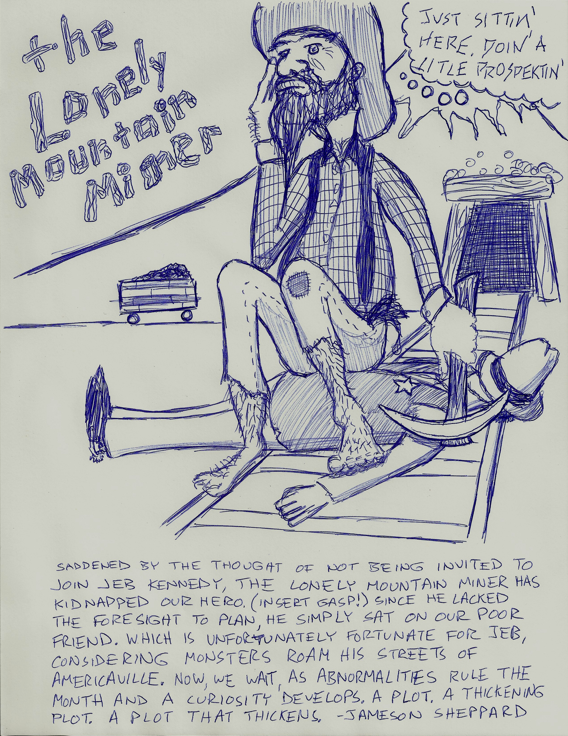 the
Lonely
Mountain
Miner
JUST SITTIN'
HERE, DOIN' A
LITLE PROSPEKTIN'
SADDENED BY THE THOUGHT OF NOT BEING INVITED TO
JOIN JEB KENNEDY, THE LONELY MOUNTAIN MINER HAS
KIDNAPPED OUR HERO. (INSERT GASP!) SINCE HE LACKED
THE FORESIGHT TO PLAN, HE SIMPLY SAT ON OUR POOR
FRIEND. WHICH IS UNFORTUNATELY FORTUNATE FOR JEB,
CONSIDERING MONSTERS ROAM HIS STREETS OF
AMERICAVILLE. NOW, WE WAIT, AS ABNORMALITIES RULE THE
MONTH AND A CURIOSITY DEVELOPS. A PLOT. A THICKENING
PLOT. A PLOT THAT THICKENS. -JAMESON SHEPPARD